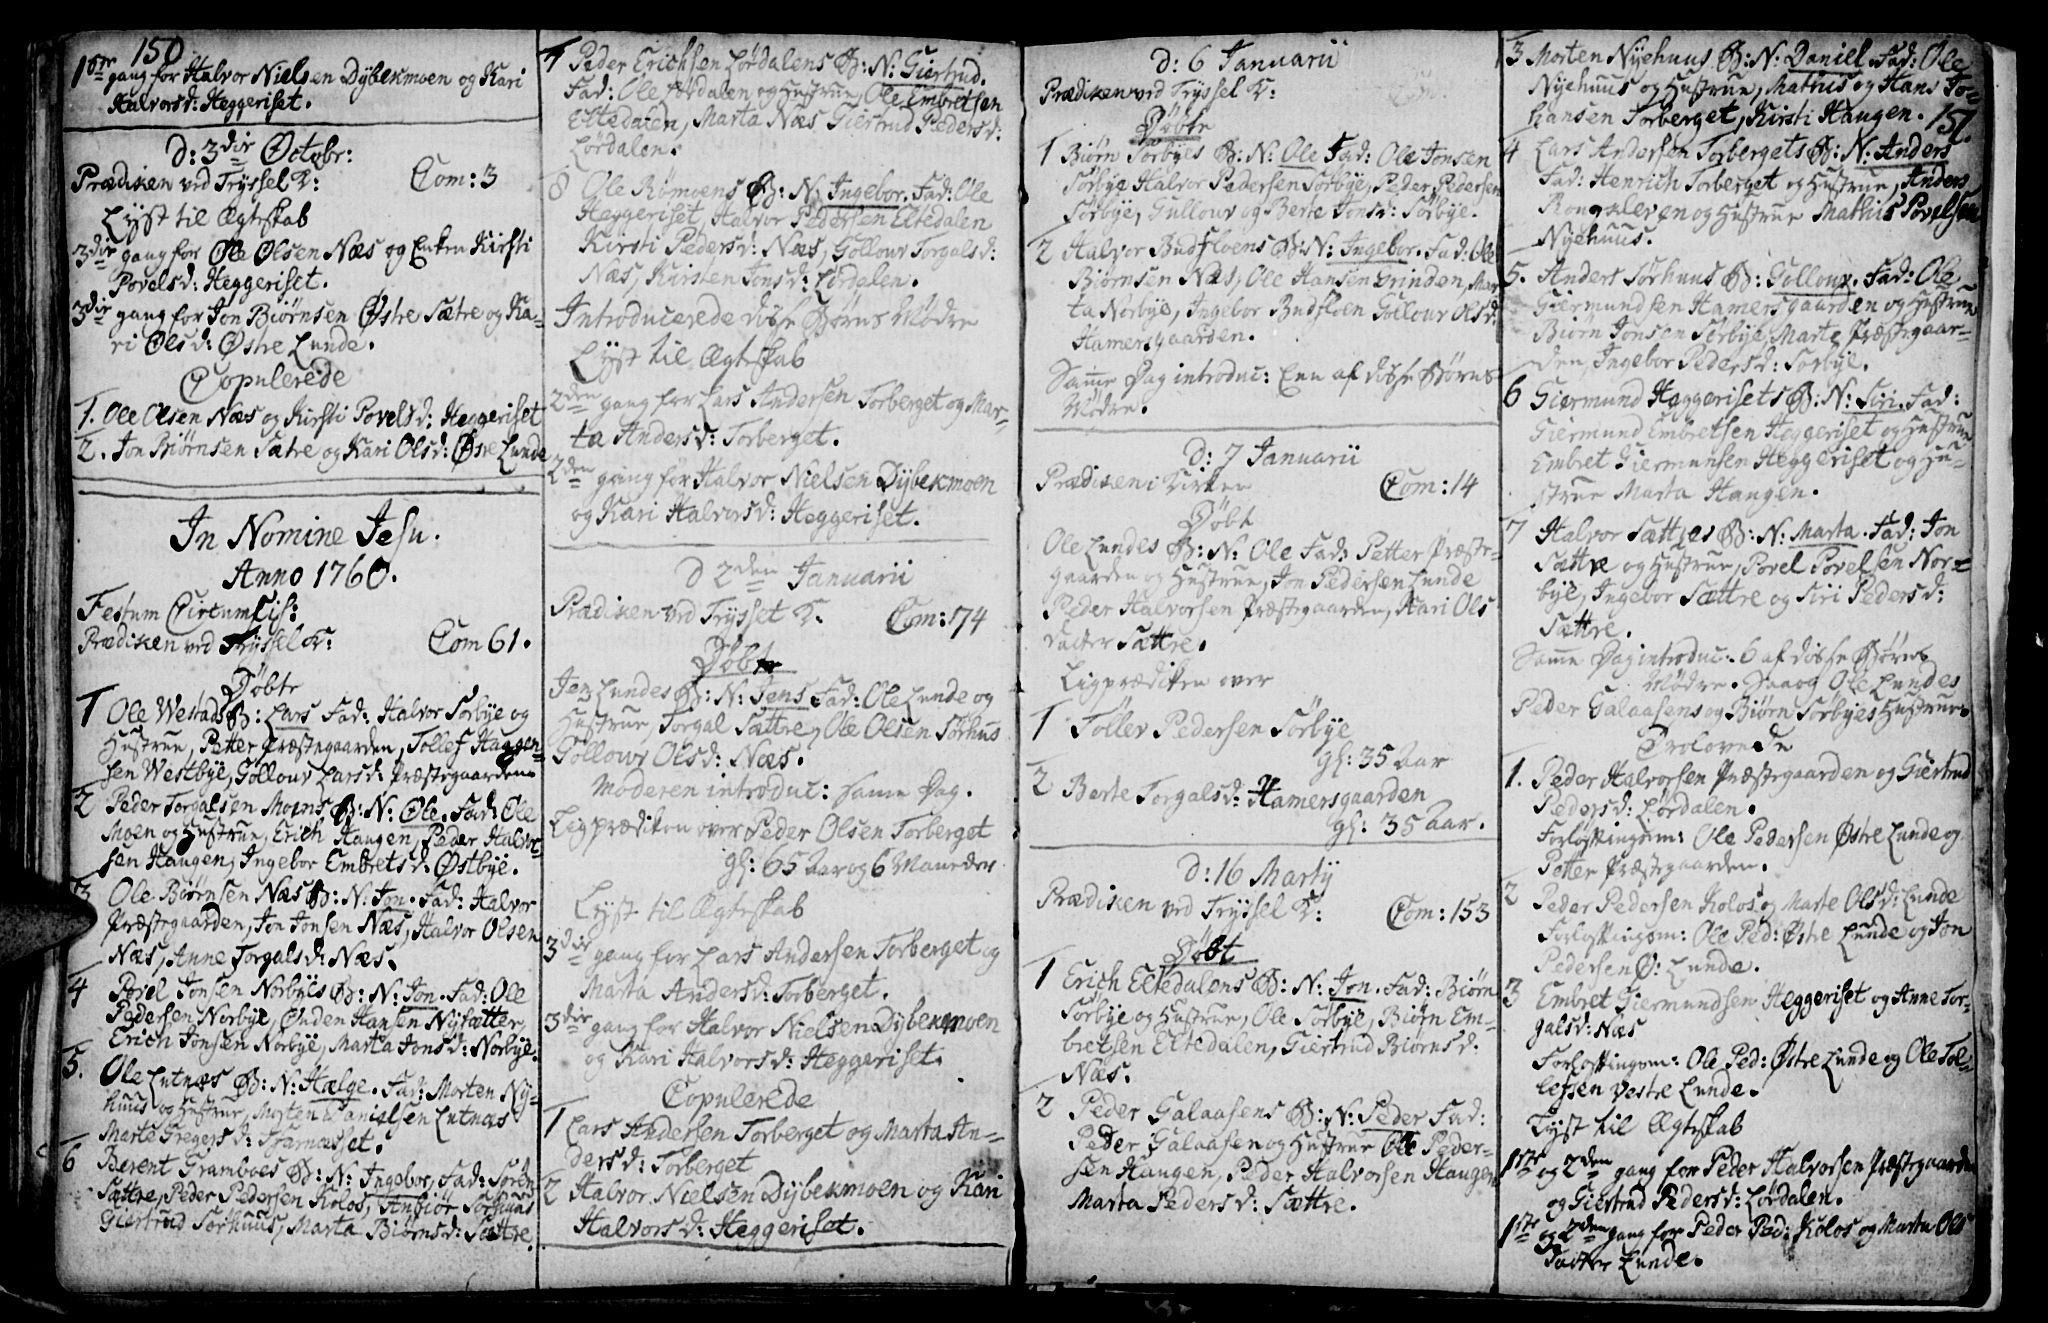 150
1ste gang for Halvor Nielsen Dybekmoen og Kari
Halvorsd: Heggeriset.
D: 3die Octobr:
Prædiken ved Tryssel K: Com: 3
Lyst til Ægteskab
3die gang for Ole Olsen Næs og Enken Kirsti
Povelsd: Heggeriset.
3die gang for Jon Biørnsen Østre Sætre og Ka-
ri Olsd: Østre Lunde.
Copulerede
1. Ole Olsen Næs og Kirsti Povelsd: Heggeriset
2. Jon Biørnsen Sætre og Kari Olsd: Østre Lunde
In Nomine Jesu.
Anno 1760.
Festum Circumcis:
Prædiken ved Tryssel K: Com 61.
Døbte
1 Ole Westads B: Lars Fad: Halvor Sorbye og
Hustrue, Petter Præstegaarden, Tollef Haagen-
sen Westbye, Gollour Larsd: Præstegaarden
2 Peder Torgalsen Moens B: N: Ole. Fad: Ole
Moen og Hustrue, Erich Haugen, Peder Halvor-
sen Haugen, Ingebor Embretsd: Østbye.
3 Ole Biørnsen Næs B: N: Jon. Fad: Halvor
Præstegaarden, Jon Jonsen Næs, Halvor Olsen
Næs, Anne Torgalsd: Næs.
4 Povel Jonsen Norbyes B: N: Jon. Fad: Ole
Pedersen Norbye, Ønden Hansen Nysætter,
Erich Jonsen Norbye, Marta Jonsd: Norbye.
5. Ole Lutnæs B: N: Hælge. Fad: Morten Ny-
huus og Hustrue, Morten Danielsen Lutnæs
Marte Gregersd:
6 Berent Gramboes B: N: Ingebor, Fad: Sørén
Sættre, Peder Pedersen Kolos, Anbiør Sorhuus
Giertrud Sorhuus, Marta Biørnsd: Sættre.
7 Peder Erichsen Lørdalens B: N: Giertrud.
Fad: Ole Lørdalen og Hustrue, Ole Embretsen
Eltedalen, Marta Næs, Giertrud Pedersd:
Lørdalen.
8 Ole Rømoens B: N: Ingebor. Fad: Ole
Heggeriset, Halvor Pedersen Eltedalen
Kirsti Pedersd: Næs, Gollour Torgalsd:
Næs, Kirsten Jonsd: Lørdalen.
Introducerede disse Børns Mødre
Lyst til Ægteskab
2den gang for Lars Andersen Torberget og Mar-
ta Andersd: Torberget.
2den gang for Halvor Nielsen Dybekmoen
og Kari Halvorsd: Heggeriset.
D 2den Januarii
Prædiken ved Trysset K. Com: 74
Døbte
Jens Lundes B: N: Jens Fad: Ole Lunde og
Hustrue, Torgal Sættre, Ole Olsen Sorhus
Gollour Olsd: Næs.
Moderen introduc: samme Dag.
Ligprædiken over Peder Olsen Torberget
gl: 65 Aar og 6 Maaneder
Lyst til Ægteskab
3die gang for Lars Andersen Torberget og
Marta Andersd: Torberget.
3die gang for Halvor Nielsen Dybekmoen
og Kari Halvorsd: Heggeriset.
Copulerede
1 Lars Andersen Torberget og Marta An-
dersd: Torberget
2 Halvor Nielsen Dybekmoen og Kari
Halvorsd: Heggeriset.
D: 6 Januarii
Prædiken ved Tryssel K:
Døbte
1 Biørn Sorbyes B: N: Ole Fad: Ole Jonsen
Sorbye Halvor Pedersen Sorbye, Peder Pedersen
Sorbye, Gullour og Berte Jonsd: Sorbye.
2 Halvor Budfloens B: N: Ingebor. Fad: Ole
Biørnsen Næs, Ole Hansen Grinden, Mar-
ta Norbye, Ingebor Budfloen Gollour Olsd:
Hamersgaarden.
Samme Dag introduc: Een af disse Børns
Mødre.
D: 7 Januarii
Prædiken i Kirken Com: 14
Døbt
Ole Lundes B: N: Ole Fad: Petter Præste-
gaarden og Hustrue, Jon Pedersen Lunde
Peder Halvorsen Præstegaarden, Kari Ols
datter Sættre.
Ligprædiken over
1 Tollev Pedersen Sorbye
gl: 35 Aar
2 Berte Torgalsd: Hamersgaarden
gl: 35 Aar.
D: 16 Martij
Prædiken ved Tryssel K: Com: 153
Døbt
1 Erich Eltedalens B: N: Jon. Fad: Biørn
Sorbye og Hustrue, Ole Sorbye, Biørn Em-
bretsen Eltedalen, Giertrud Biørnsd:
Næs.
2 Peder Galaasens B: N: Peder Fad:
Peder Galaasen og Hustrue Ole Peder-
sen Haugen, Peder Halvorsen Haugen
Marta Pedersd: Sættre.
3 Morten Nyehuus B: N: Daniel. Fad: Ole
Nyehuus og Hustrue, Mathis og Hans Jo-
hansen Torberget, Kirsti Haugen. 151.
4 Lars Andersen Torbergets B: N: Anders
Fad: Henrich Torberget og Hustrue, Anders
Rongkleven og Hustrue Mathis Povelsen
Nyehuus.
5. Anders Sorhuus B: Gollour. Fad: Ole
Giermundsen Hamersgaarden og Hustrue
Biørn Jonsen Sorbye, Marte Præstegaar-
den, Ingebor Pedersd: Sorbye.
6 Giermund Heggerisets B: N: Siri. Fad:
Giermund Embretsen Heggeriset og Hustrue
Embret Giermunsen Heggeriset og Hu-
strue Marta Haugen.
7 Halvor Sættres B: N: Marta. Fad: Jon
Sættre og Hustrue, Povel Povelsen Nor-
bye, Ingebor Sættre og Siri Pedersd:
Sættre.
Samme Dag introduc: 6 af disse Børns
Mødre. Saa og Ole Lundes
Peder Galaasens og Biørn Sorbyes Hustruer.
Trolovede
1. Peder Halvorsen Præstegaarden og Giertrud
Pedersd: Lørdalen.
Forlofningsm: Ole Pedersen Østre Lunde og
Petter Præstegaarden.
2 Peder Pedersen Kolos og Marte Olsd: Lunde
Forlofningsm: Ole Ped: Østre Lunde og Jon
Pedersen Ø: Lunde.
3 Embret Giermundsen Heggeriset og Anne Tor-
galsd: Næs
Forlofningsm: Ole Ped: Østre Lunde og Ole Tol-
lefsen Vestre Lunde.
Lyst til Ægteskab
1ste og 2den gang for Peder Halvorsen Præstegaarden
og Giertrud Pedersd: Lørdalen.
1ste og 2den gang for Peder Ped: Kolos og Marta Ols
datter Lunde.